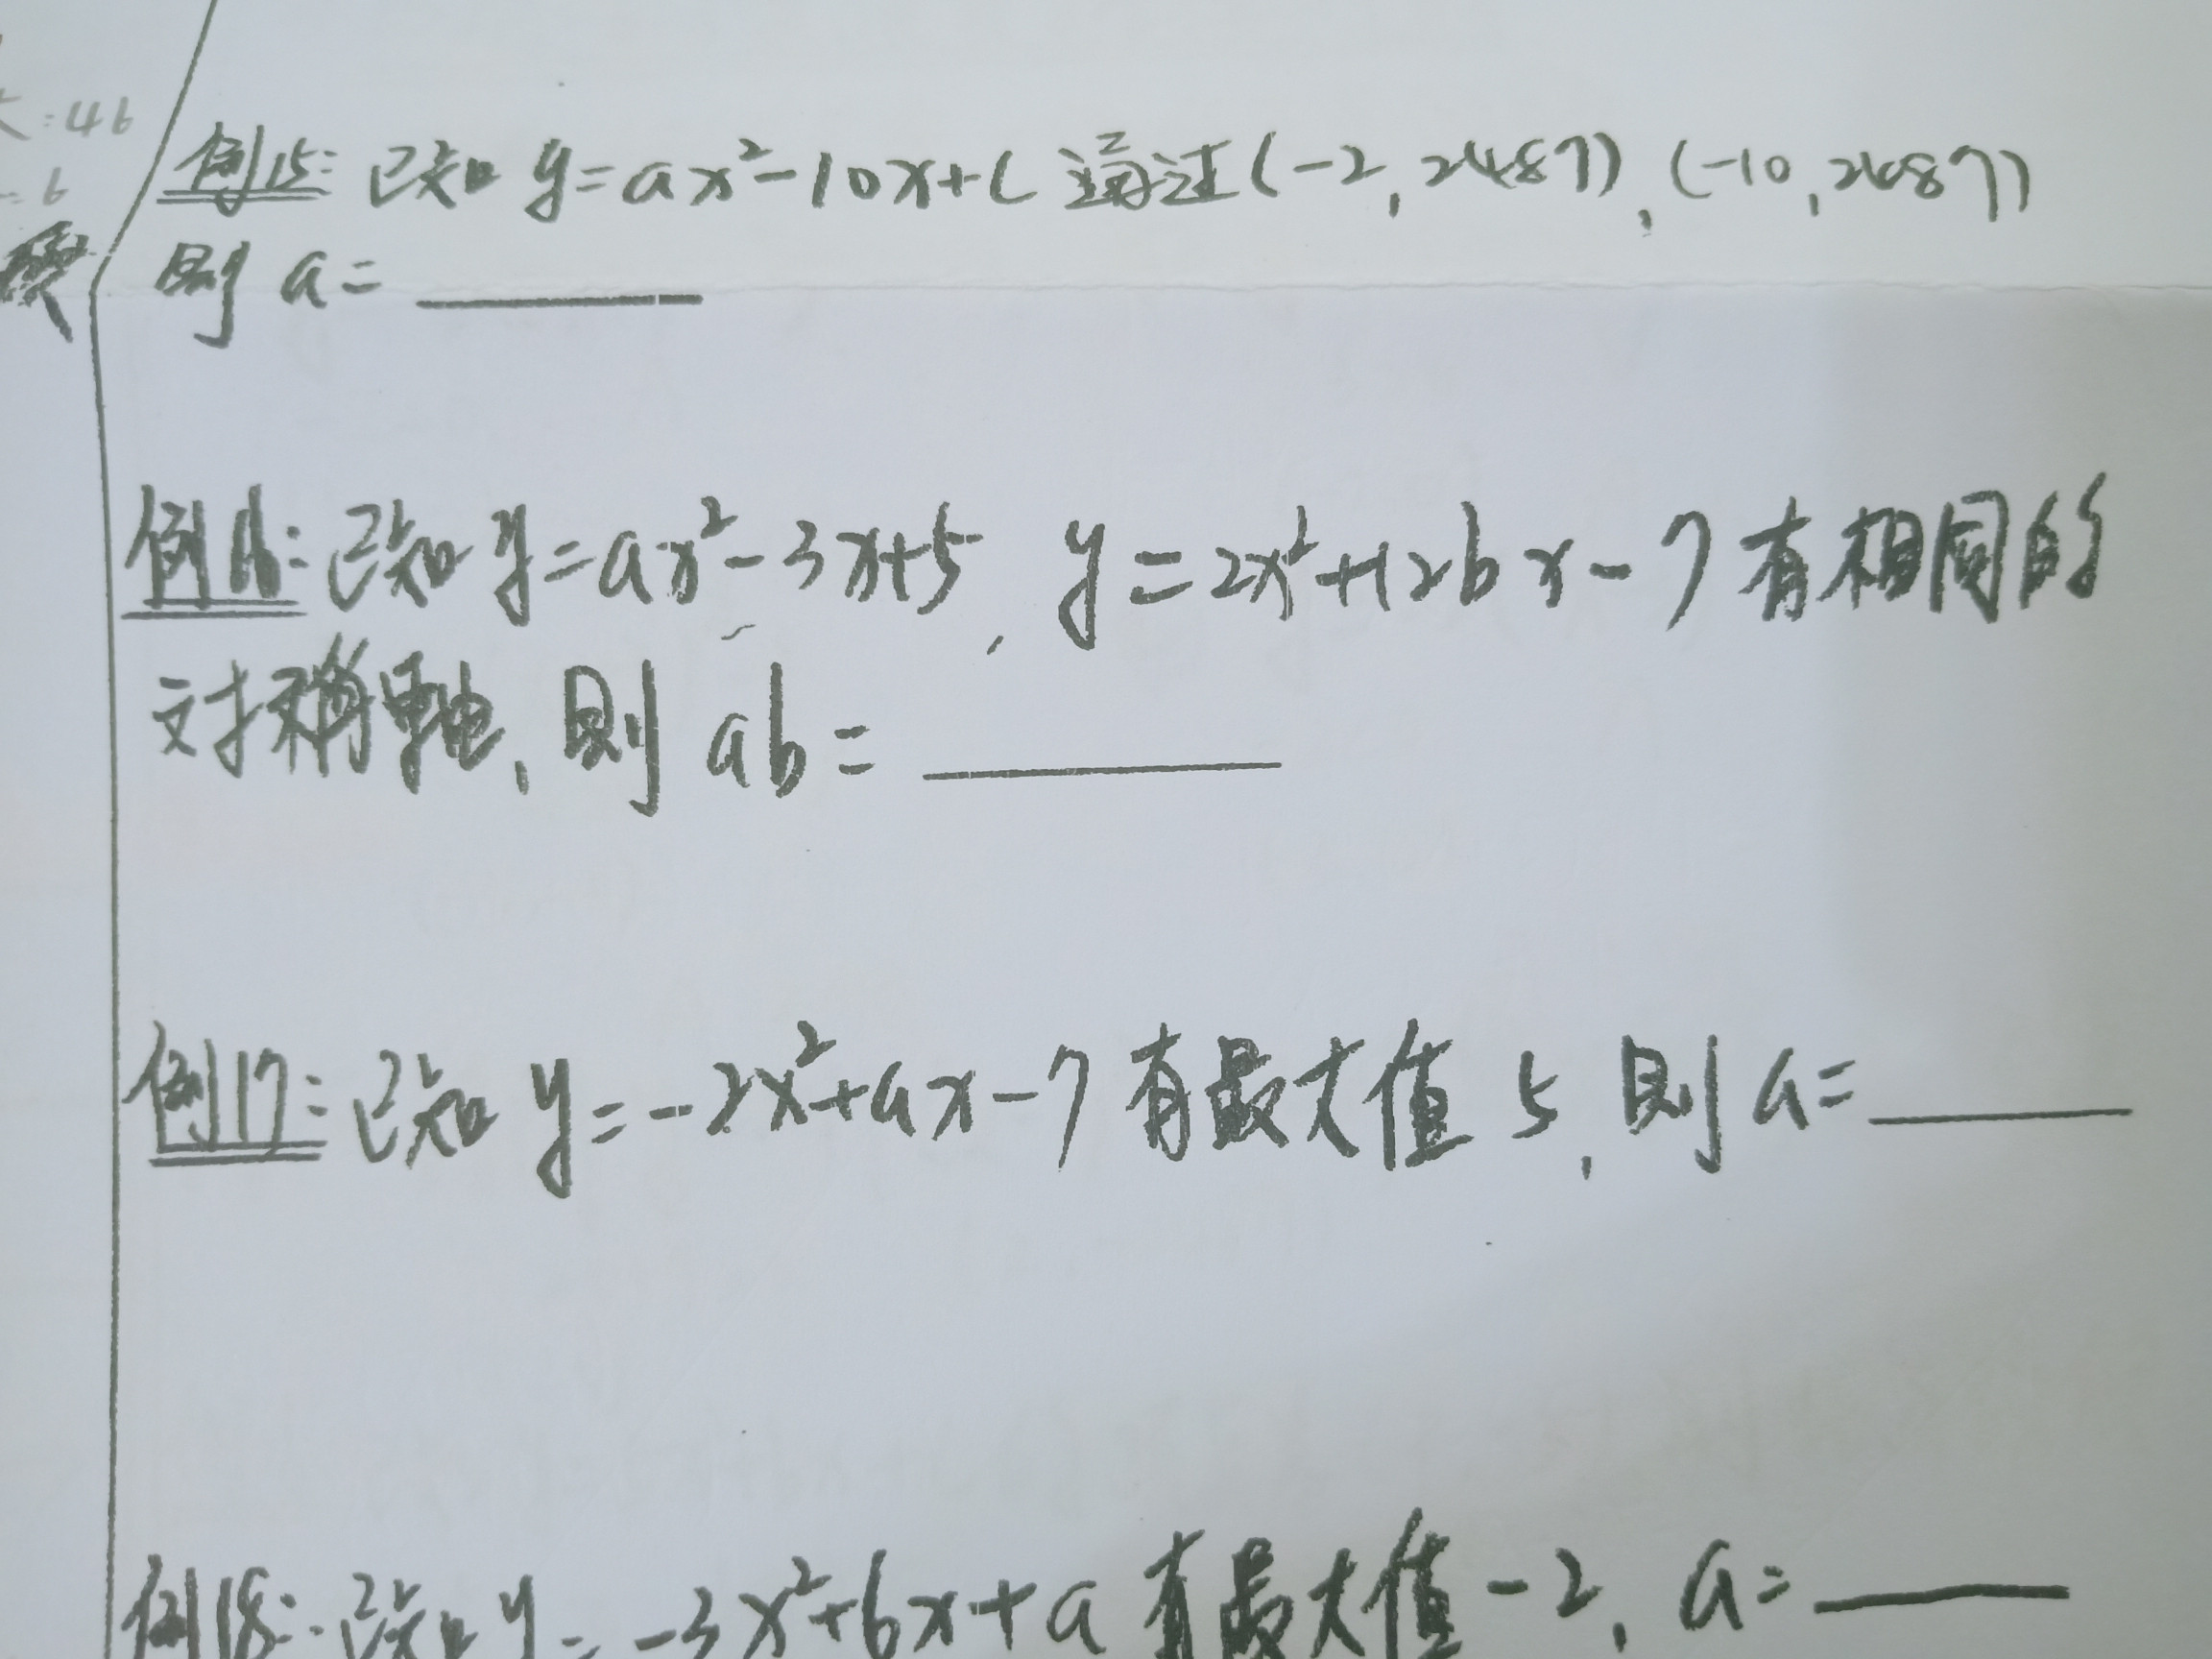 例15: 已知 y=ax²-10x+c 通过(-2,2487),(-10,2487)
则 a= ______
例16: 已知 y=ax²-3x+5, y=2x²+12bx-7有相同的
对称轴,则 ab= ______
例17: 已知 y=-2x²+ax-7有最大值5,则 a=______
例18: 已知 y=-3x²+6x+a 有最大值-2, a=______